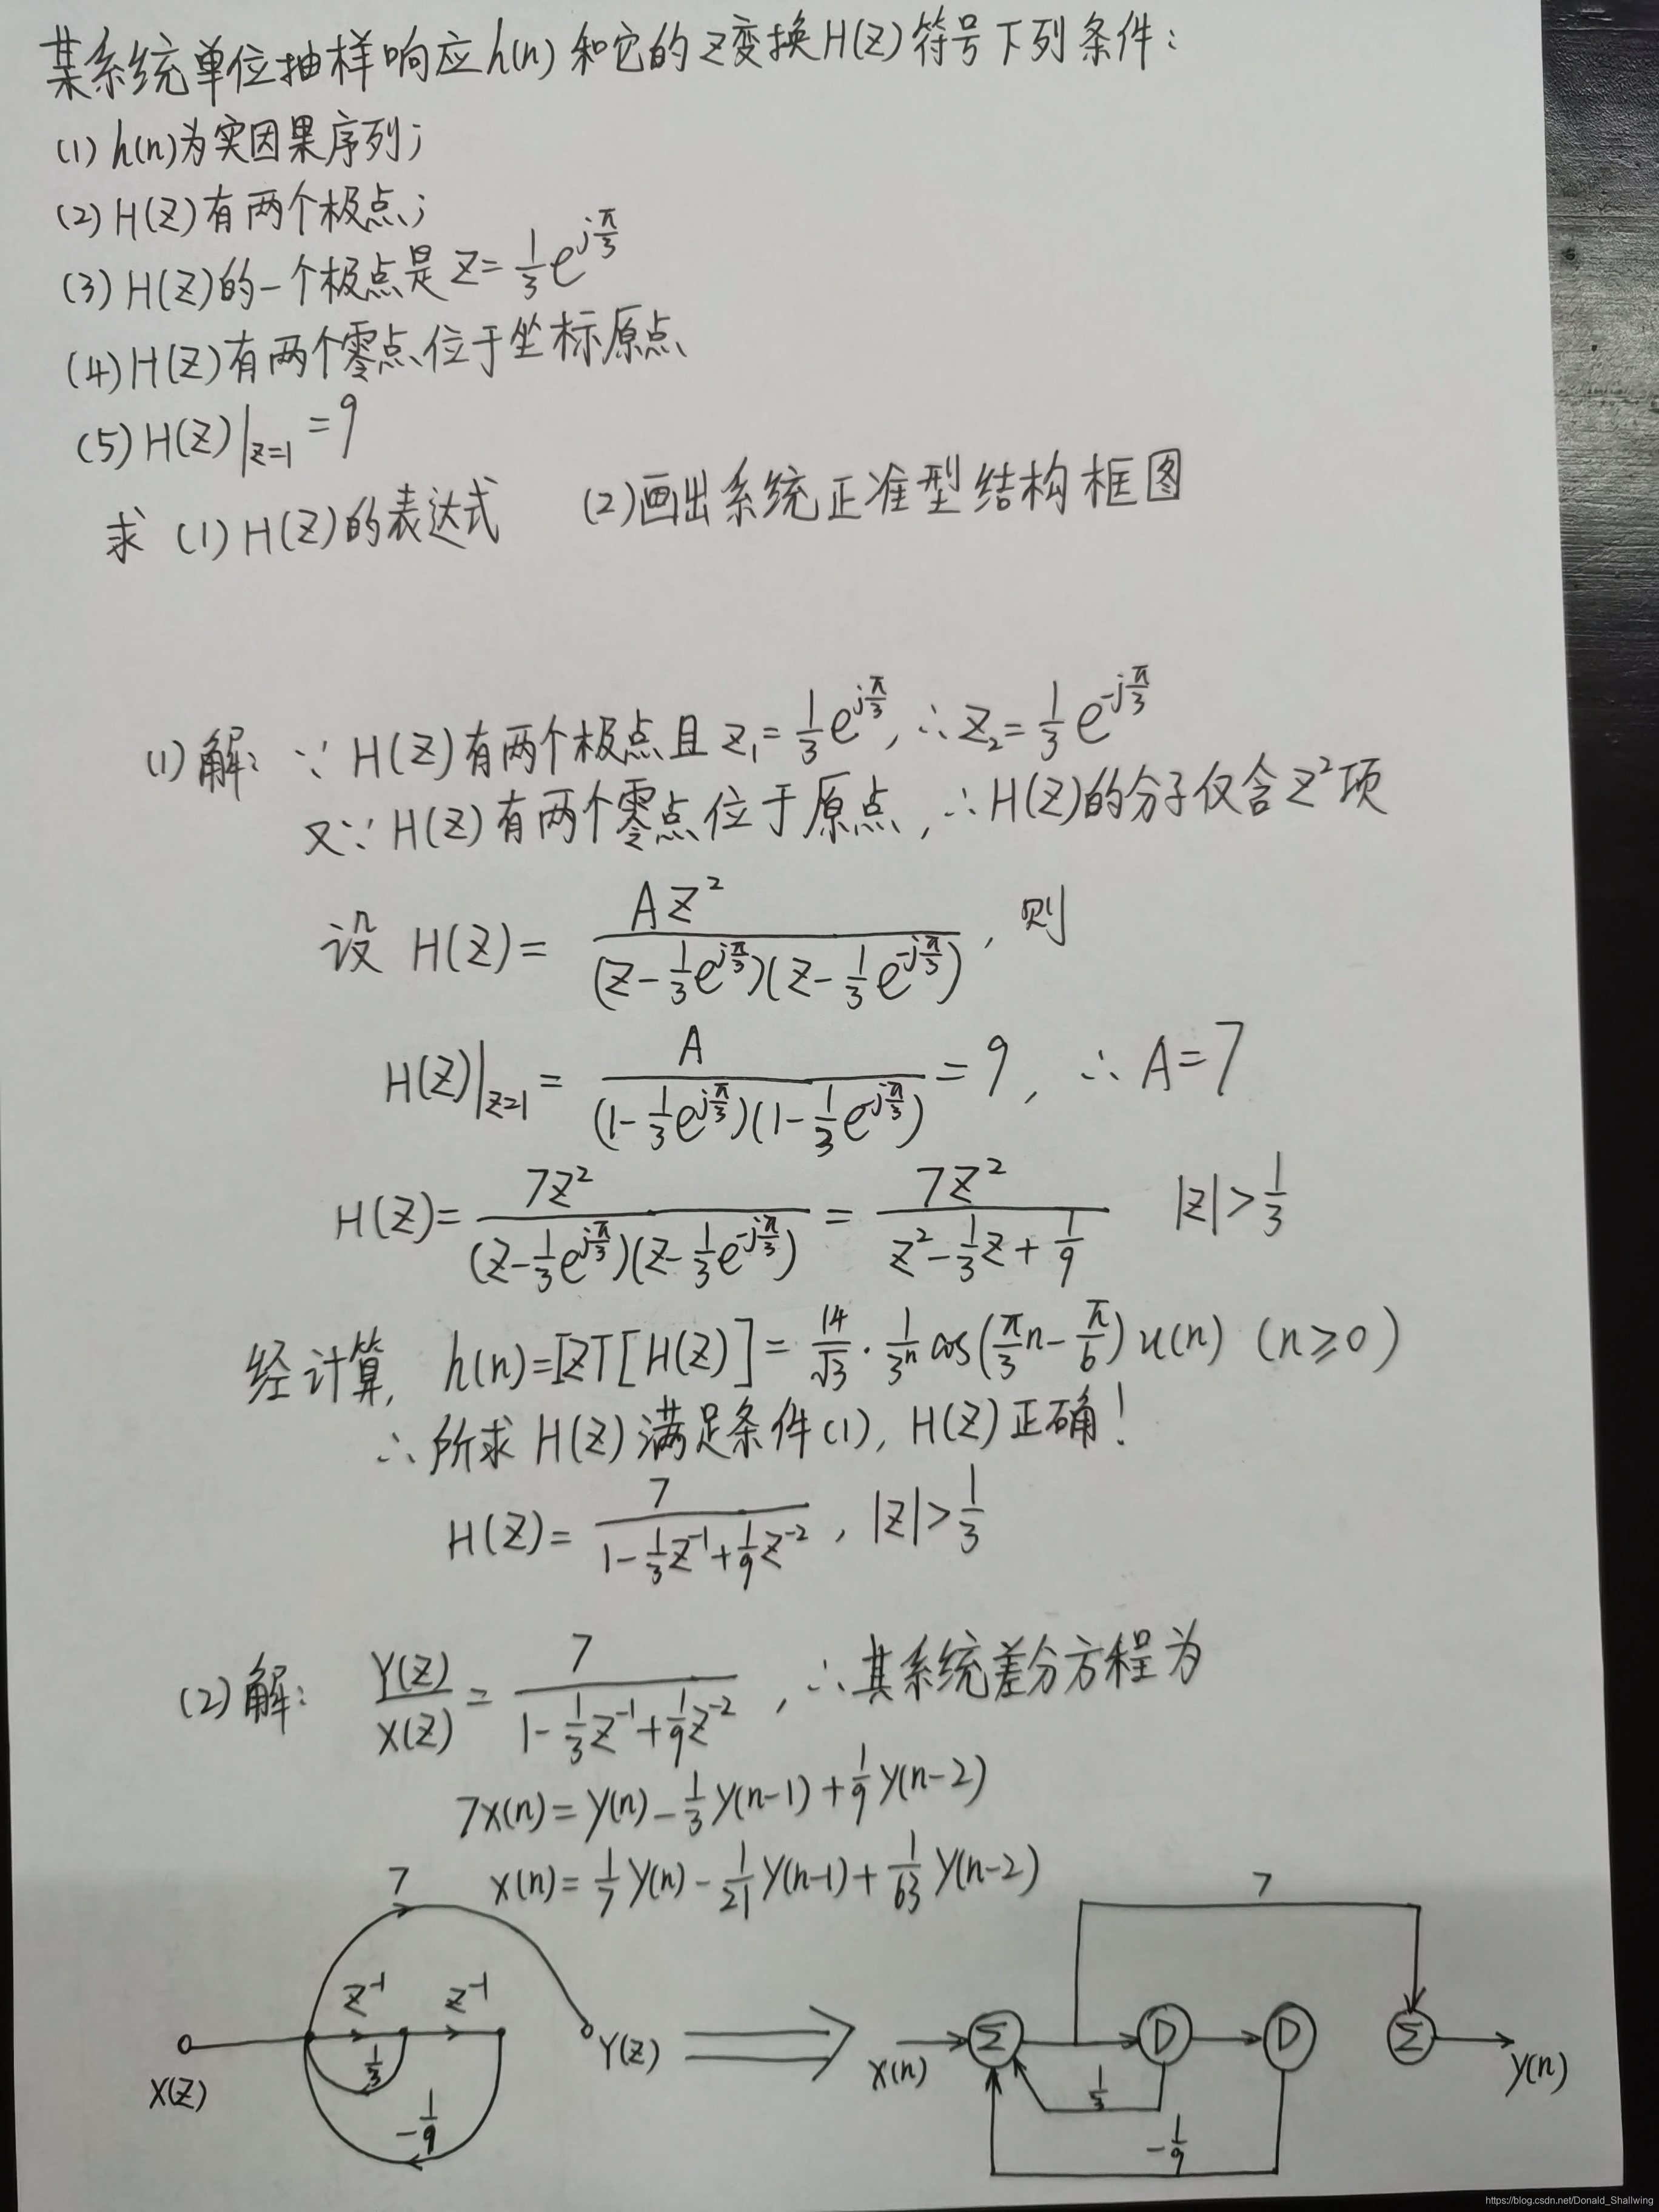 某系统单位抽样响应h(n)和它的Z变换H(Z)符号下列条件:
(1) h(n)为实因果序列;
(2) H(Z)有两个极点;
(3) H(Z)的一个极点是 Z=1/3 e^{jπ/3}
(4) H(Z)有两个零点位于坐标原点
(5) H(Z)|_{z=1}=9
求 (1) H(Z)的表达式 (2)画出系统正准型结构框图
(1)解: ∵ H(Z)有两个极点且 Z₁=1/3 e^{jπ/3}, ∴Z₂=1/3 e^{-jπ/3}
又∵ H(Z)有两个零点位于原点, ∴H(Z)的分子仅含Z²项
设 H(Z)= AZ²/((Z-1/3 e^{jπ/3})(Z-1/3 e^{-jπ/3})), 则
H(Z)|_{z=1} = A/((1-1/3 e^{jπ/3})(1-1/3 e^{-jπ/3})) = 9, ∴ A=7
H(Z)= 7Z²/((Z-1/3 e^{jπ/3})(Z-1/3 e^{-jπ/3})) = 7Z²/(Z²-1/3 Z+1/9) |Z|>1/3
经计算, h(n)=IZT[H(Z)]= 14/√3 · 1/3ⁿ cos(π/3 n - π/6) u(n) (n≥0)
∴所求 H(Z)满足条件(1), H(Z)正确!
H(Z)= 7/(1-1/3 Z⁻¹+1/9 Z⁻²), |Z|>1/3
(2)解: Y(Z)/X(Z) = 7/(1-1/3 Z⁻¹+1/9 Z⁻²), ∴其系统差分方程为
7X(n)=Y(n)-1/3 Y(n-1)+1/9 Y(n-2)
X(n)=1/7 Y(n)-1/21 Y(n-1)+1/63 Y(n-2)
7
Z⁻¹ Z⁻¹
1/3
-1/9
X(Z)
Y(Z)
7
X(n) Σ D D Σ Y(n)
1/3
-1/9
https://blog.csdn.net/Donald_Shallwing